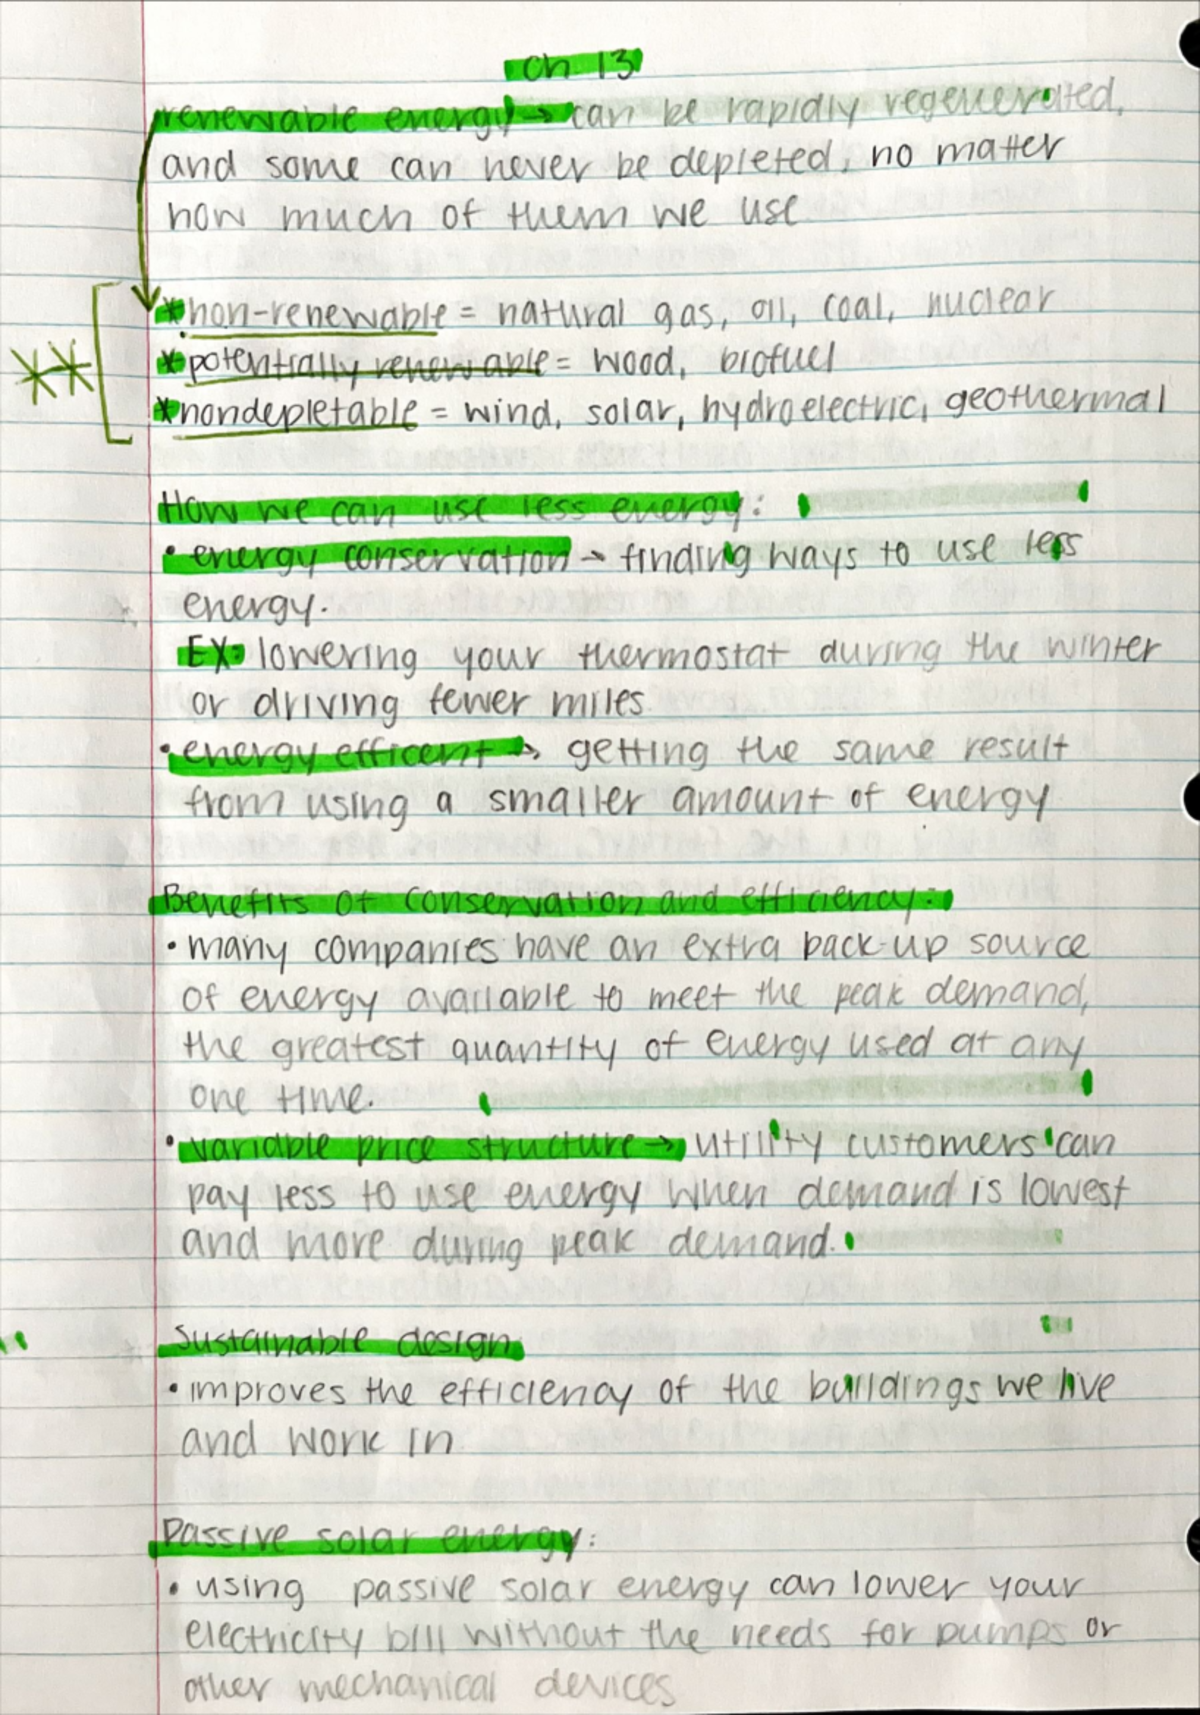 Ch 13
renewable energy → can be rapidly regenerated,
and some can never be depleted, no matter
how much of them we use
*non-renewable = natural gas, oil, coal, nuclear
**
*potentially renewable = wood, biofuel
*nondepletable = wind, solar, hydroelectric, geothermal
How we can use less energy:
• energy conservation → finding ways to use less
energy.
EX: lowering your thermostat during the winter
or driving fewer miles
• energy efficent → getting the same result
from using a smaller amount of energy
Benefits of conservation and efficiency:
• many companies have an extra back-up source
of energy available to meet the peak demand,
the greatest quantity of energy used at any
one time.
• variable price structure → utility customers can
pay less to use energy when demand is lowest
and more during peak demand.
Sustainable design
• improves the efficiency of the buildings we live
and work in
Passive solar energy:
• using passive solar energy can lower your
electricity bill without the needs for pumps or
other mechanical devices